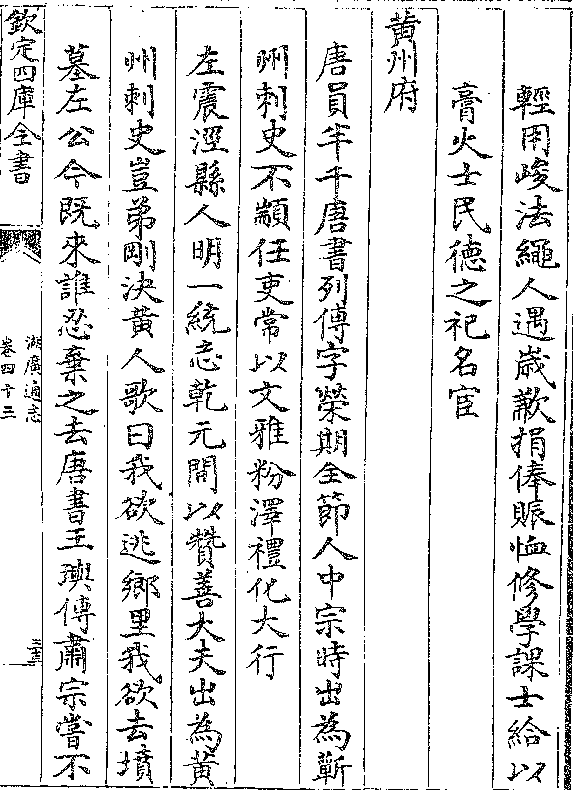 輕用峻法繩人遇歲歉捐俸賑恤修學課士給以
膏火士民德之祀名宦
黄州府
唐員半千唐書列傳字榮期全節人中宗時出為蘄
州刺史不顓任吏常以文雅粉澤禮化大行
左震涇縣人明一統志乾元間以贊善大夫出為黄
州刺史豈弟剛決黄人歌曰我欲逃鄉里我欲去墳
墓左公今既來誰忍棄之去唐書王璵傳肅宗嘗不
欽定四庫全書
湖廣通志
卷四十三